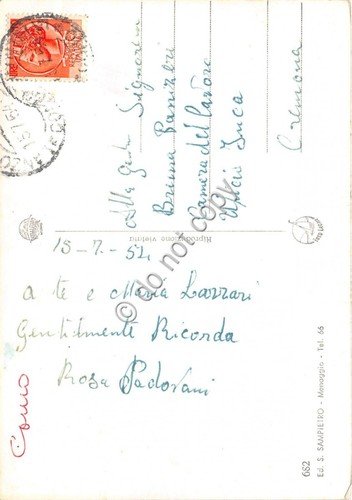 Alla gent. Signorina
Bruna Panizzari
Camera del Lavoro
Ufficio
Cremona
Riproduzione vietata
15-7-54
A te e Maria Lazzari
Gentilmente Ricorda
Rosa Padovani
Como
682
Ed. S. SAMPIETRO - Menaggio - Tel. 65
do not copy